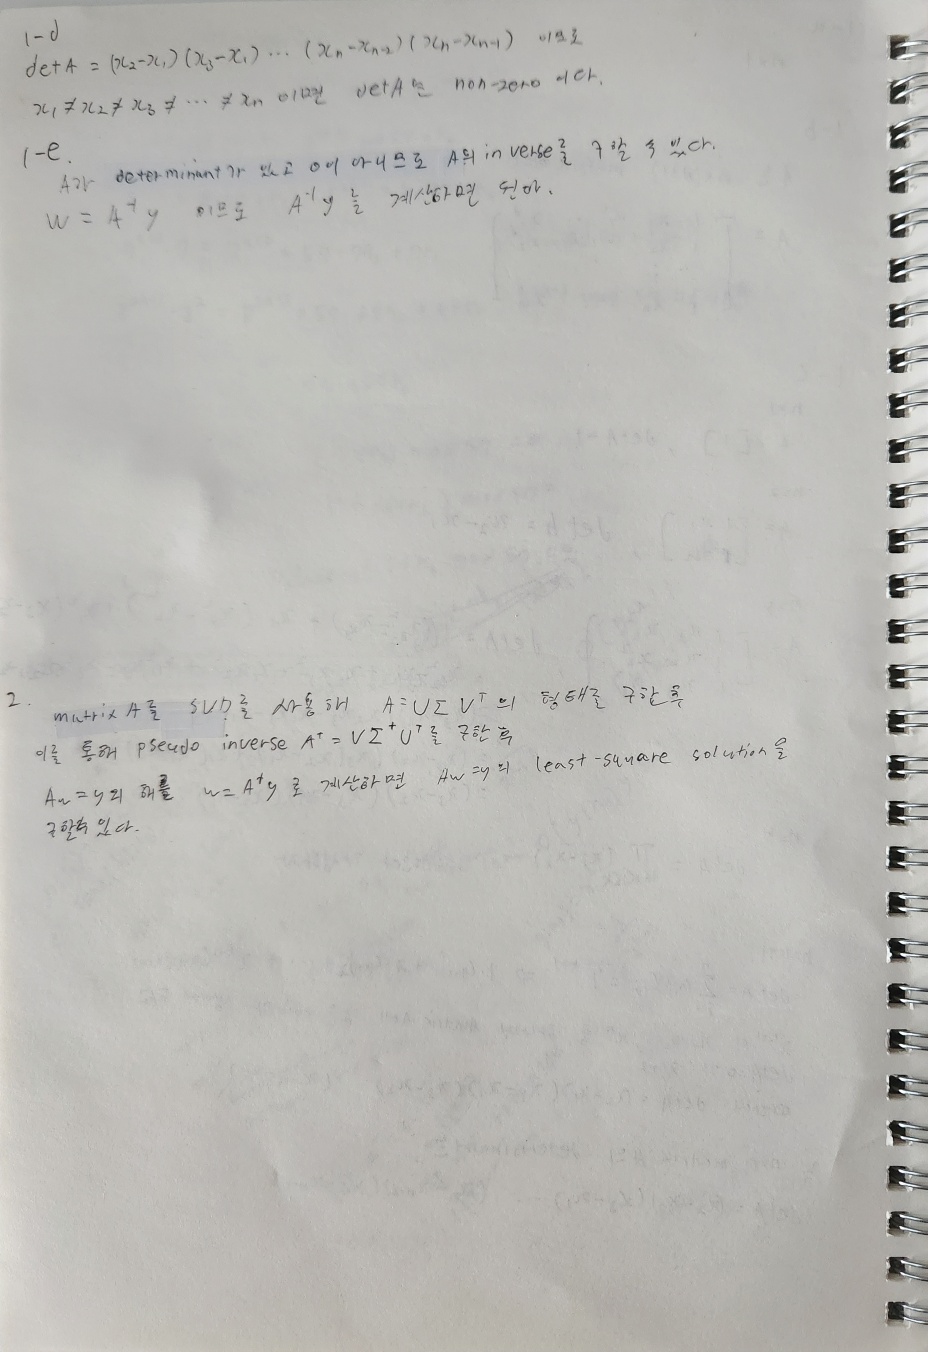 1-d
detA = (x₂-x₁)(x₃-x₁) ··· (xₙ-xₙ₋₂)(xₙ-xₙ₋₁) 이므로
x₁ ≠ x₂ ≠ x₃ ≠ ··· ≠ xₙ 이면 detA는 non-zero 이다.
1-e.
A가 determinant가 있고 0이 아니므로 A의 inverse를 구할 수 있다.
W = A⁻¹y 이므로 A⁻¹y를 계산하면 된다.
2. matrix A를 SVD를 사용해 A=UΣV^T의 형태를 구한 후
이를 통해 pseudo inverse A⁺ = VΣ⁺U^T를 구한 후
Aw=y의 해를 w=A⁺y로 계산하면 Aw=y의 least-square solution을
구할 수 있다.